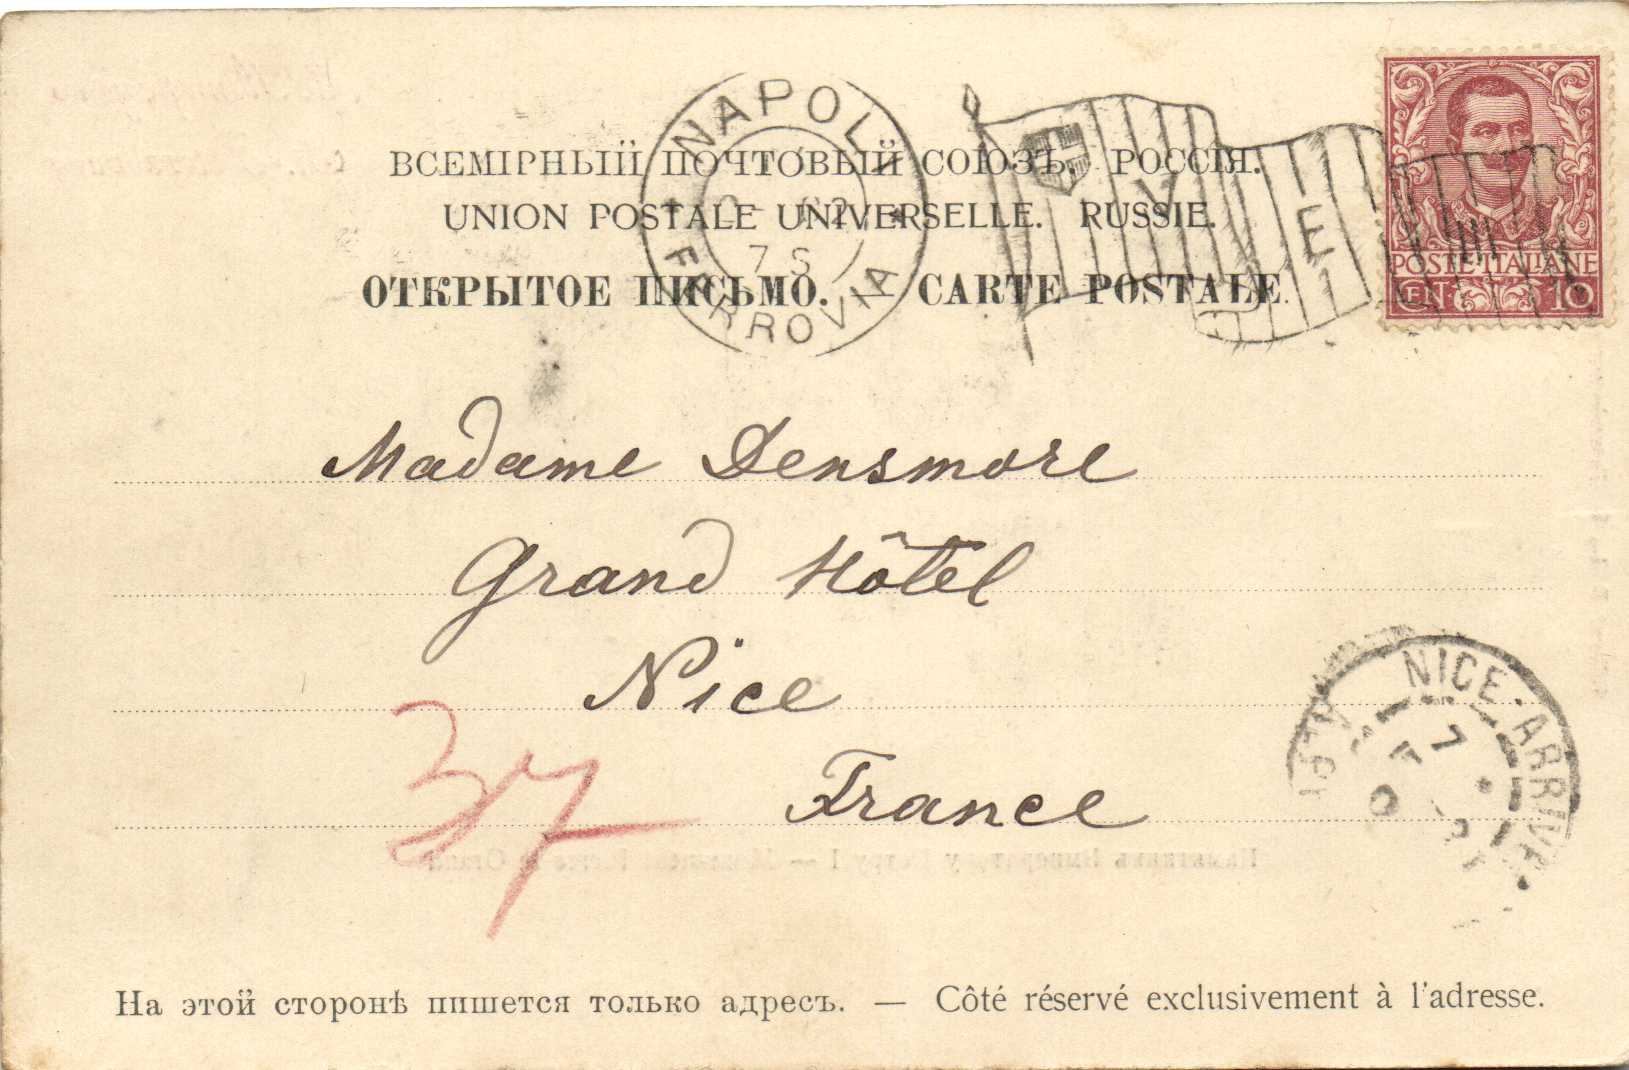 NAPOLI
FERROVIA
7 S
V
E
ВСЕМІРНЫЙ ПОЧТОВЫЙ СОЮЗЪ. РОССІЯ.
UNION POSTALE UNIVERSELLE. RUSSIE.
ОТКРЫТОЕ ПИСЬМО. CARTE POSTALE.
POSTE ITALIANE
CEN 10
Madame Densmore
Grand Hôtel
Nice
France
37
NICE-ARRIVÉE
7
На этой сторонѣ пишется только адресъ. — Côté réservé exclusivement à l'adresse.